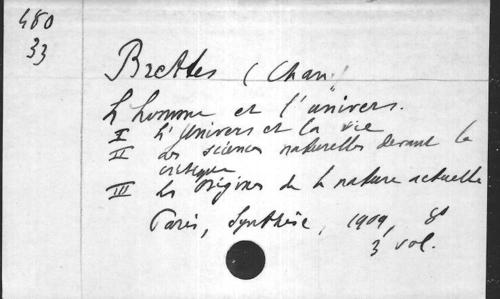 480
33
Brettes (Chan.
L'homme et l'univers.
I L'Univers et la vie
II Les sciences naturelles devant la
critique
III Les origines de la nature actuelle
Paris, Synthèse, 1909, 8°
3 vol.